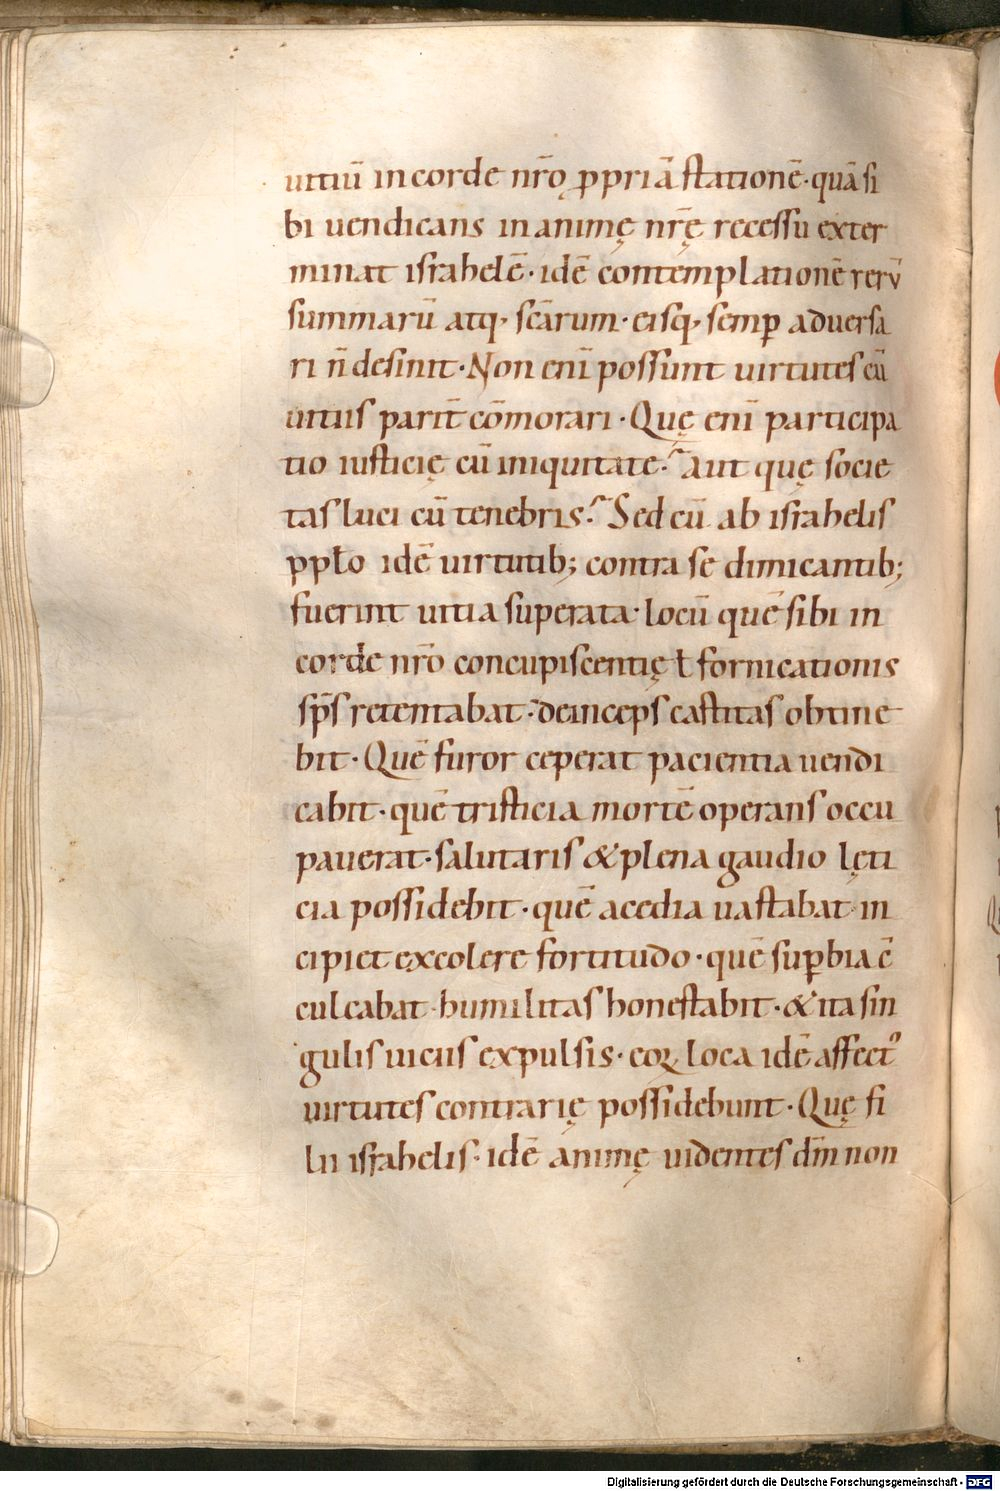 uitiū in corde nr̄o ꝓpriā stationē · quā si
bi uendicans in animę nr̄ę recessu exter
minat israhelē · idē contemplationē rerū
summarū atq; scārum · eisq; semꝑ aduersa
ri n̄ desinit · Non eni̅ possunt uirtutes cū
uitiis parit̄ cōmorari · Quę eni̅ participa
tio iusticię cū iniquitate? Aut quę socie
tas luci cū tenebris? Sed cū ab israhelis
pplo idē uirtutib; contra se dimicantib;
fuerint uitia superata · locū quē sibi in
corde nr̄o concupiscentię ł fornicationis
sp̄s retentabat · deinceps castitas obtine
bit · Quē furor ceperat pacientia uendi
cabit · quē tristicia mortē operans occu
pauerat · salutaris & plena gaudio lęti
cia possidebit · quē acedia uastabat · in
cipiet excolere fortitudo · quē suꝑbia c̄
culcabat · humilitas honestabit · & ita sin
gulis uiciis expulsis · eoꝝ loca idē affect᾽
uirtutes contrarię possidebunt · Quę fi
lii israhelis · idē animę uidentes dm̄ non
Digitalisierung gefördert durch die Deutsche Forschungsgemeinschaft - DFG